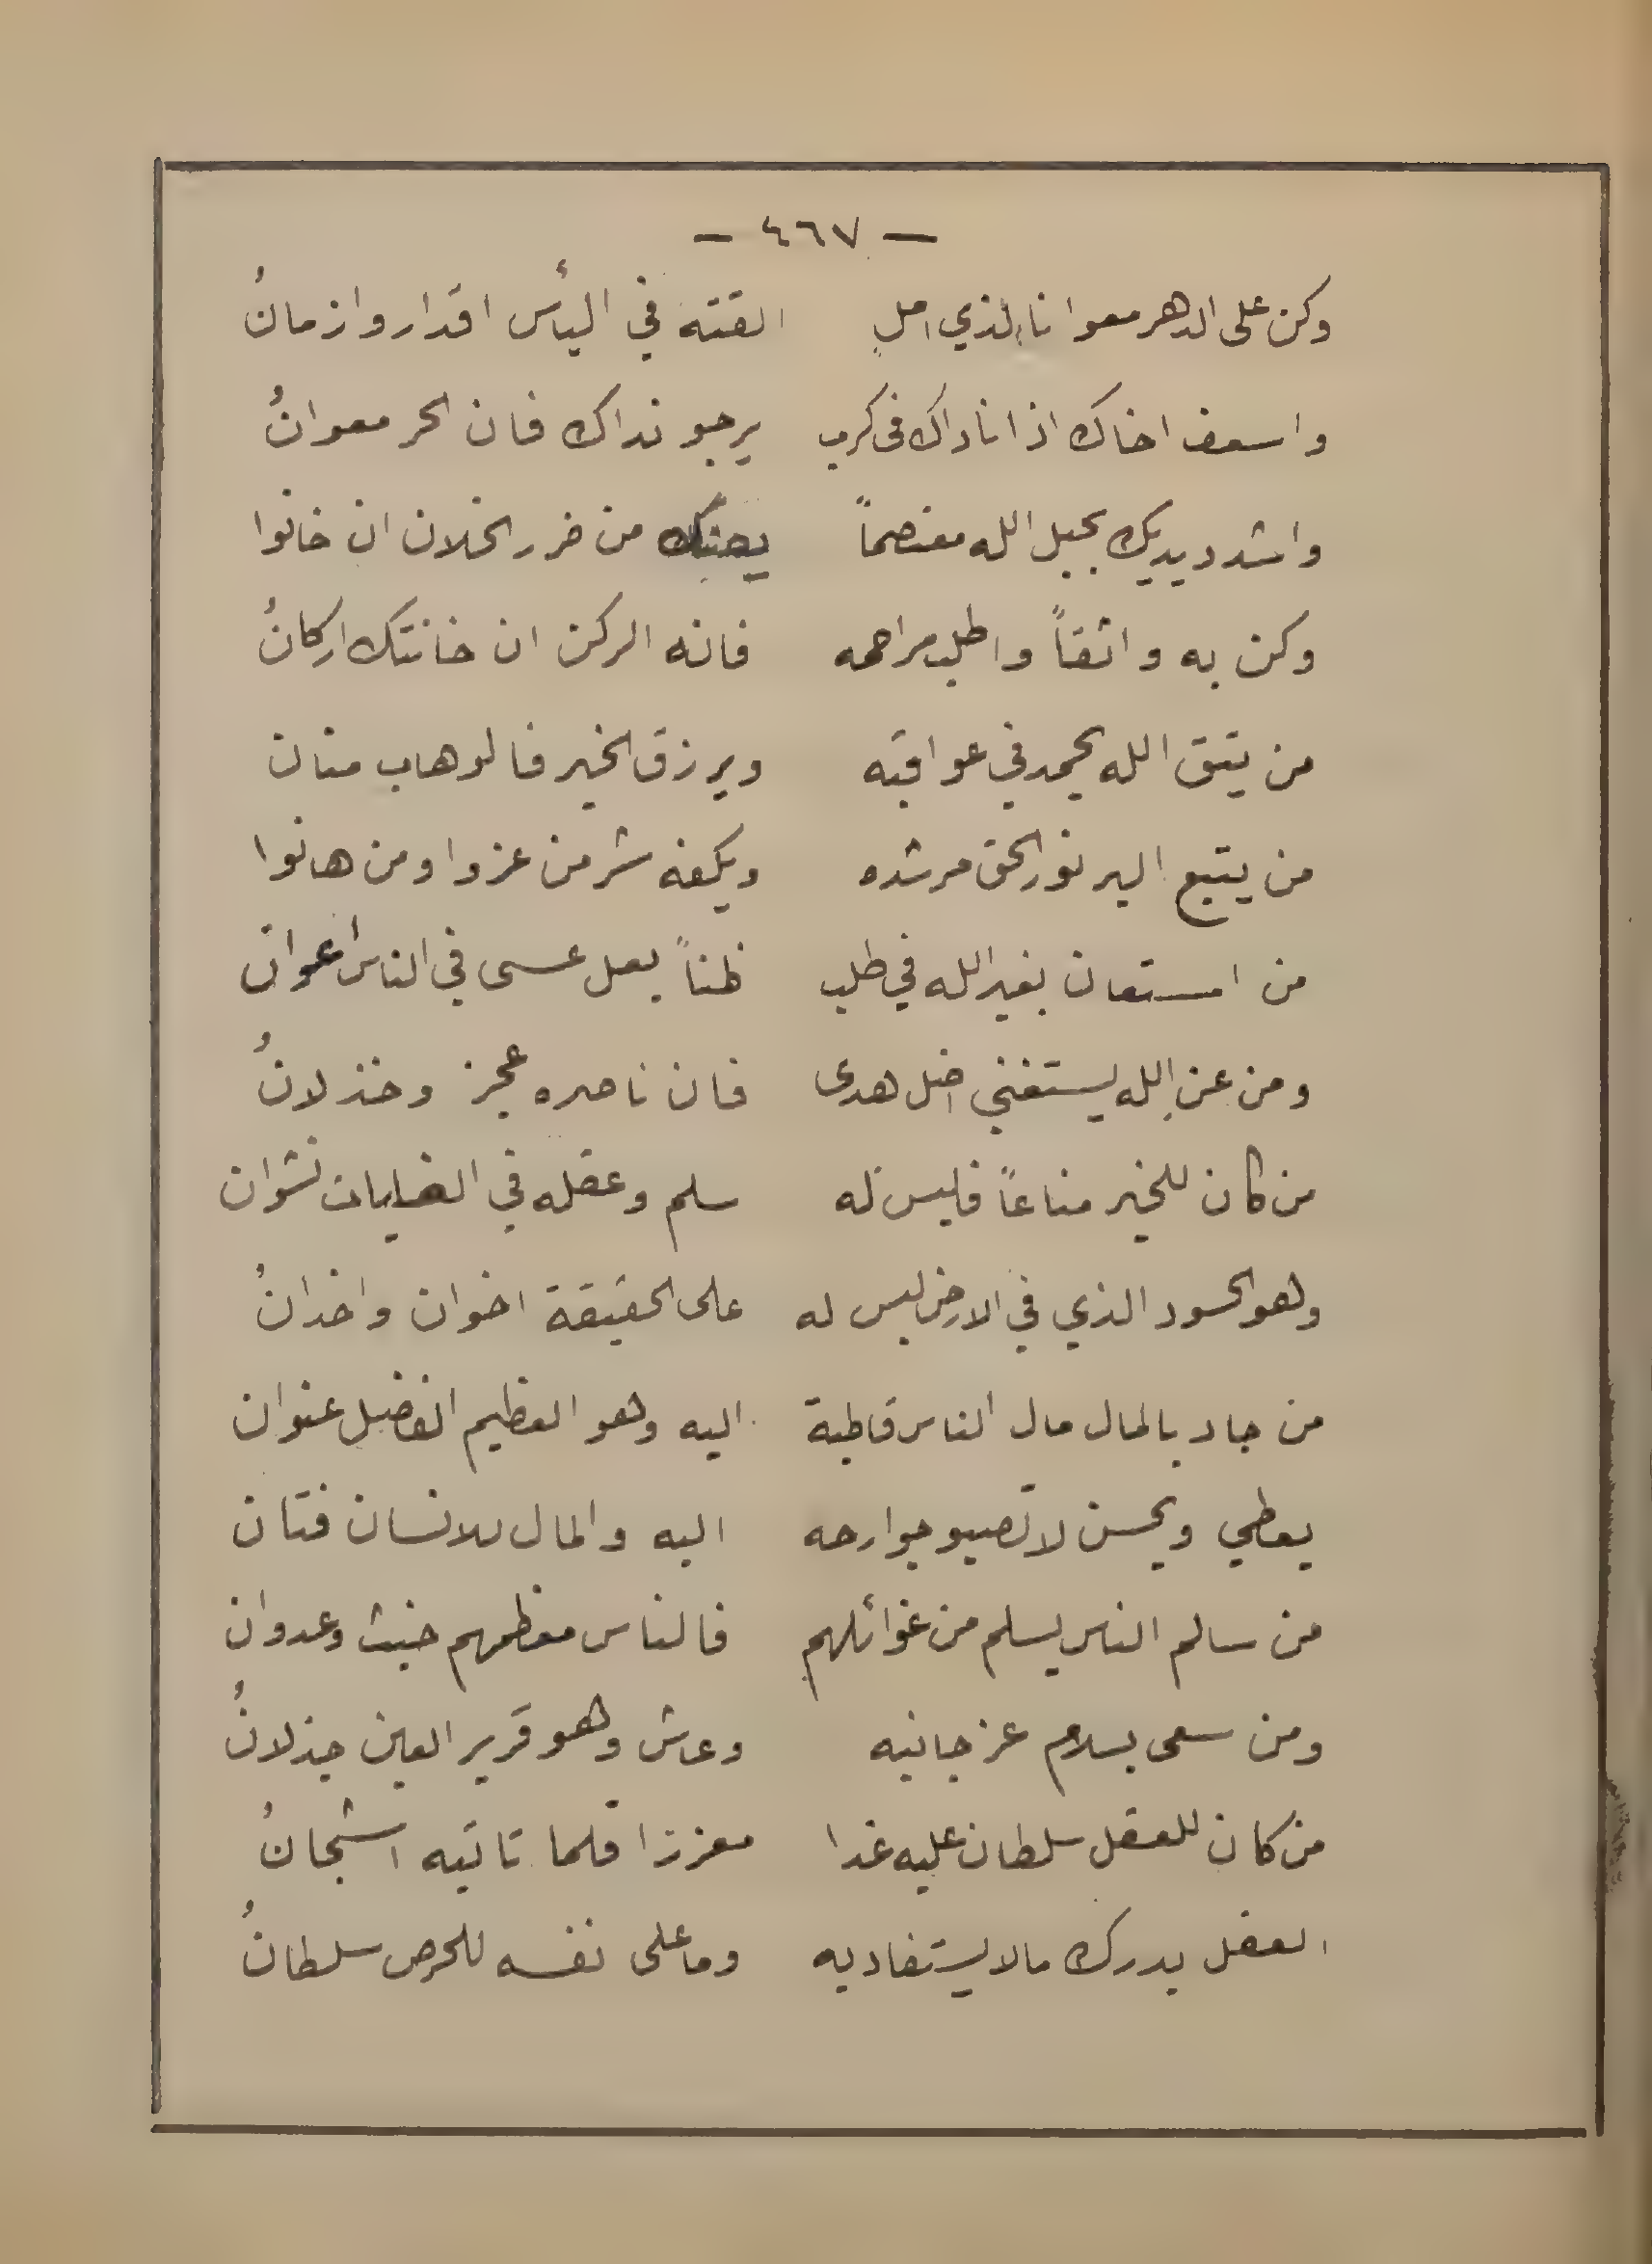 — ٤٦٧ —
وكن على الدهر معوانا لذي امل القته في اليأس اقدار وازمانُ
واسعف اخاك اذا ناداك في كرب يرجو نداك فان الحر معوانُ
واشدد يديك بحبل الله معتصماً من ضرر الخلان ان خانوا
وكن به واثقاً واطلب مراحمه فانه الركن ان خانتك اركانُ
من يتق الله يحمد في عواقبه ويرزق الخير فالوهاب منان
من يتبع البر نور الحق مرشده ويكفه شر من عزوا ومن هانوا
من استعان بغير الله في طلب ظناً بعل عسى في الناس اعوان
ومن عن الله يستغني اضل هدى فان ناصره عجز وخذلانُ
من كان للخير مناعاً فليس له سلم وعقله في الغايات نشوان
وهو الحسود الذي في الارض ليس له على الحقيقة اخوان واخدانُ
من جاد بالمال مال الناس قاطبة اليه وهو العظيم الفضل عنوان
يعطي ويحسن لا تصبو جوارحه اليه والمال للانسان فتان
من سالم الناس يسلم من غوائلهم فالناس معظمهم خبث وعدوان
ومن سعى بسلام عز جانبه وعاش وهو قرير العين جذلانُ
من كان للعقل سلطان عليه غدا معززا قلما تاتيه اشجانُ
العقل يدرك مالا يستفاد به وما على نفسه للحرص سلطانُ